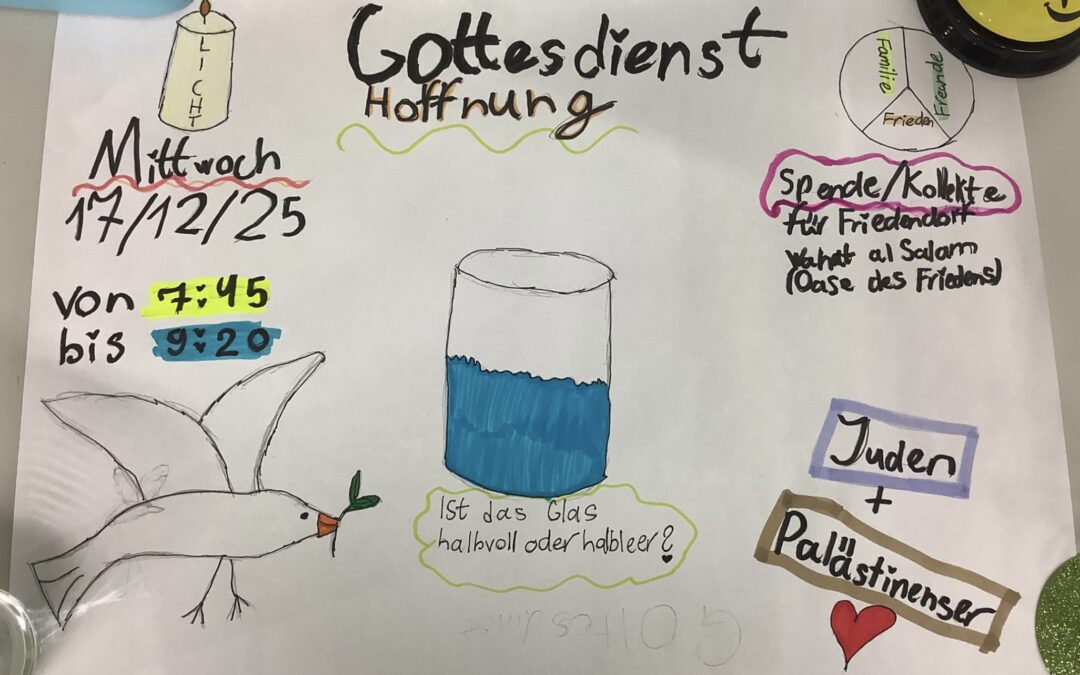 LICHT
Gottesdienst
Hoffnung
Familie
Freunde
Frieden
Mittwoch
17/12/25
von 7:45
bis 9:20
Spende/Kollekte
für Friedendorf
Wahat al Salam
(Oase des Friedens)
Ist das Glas
halbvoll oder halbleer?
Juden
+
Palästinenser
Gottesdienst